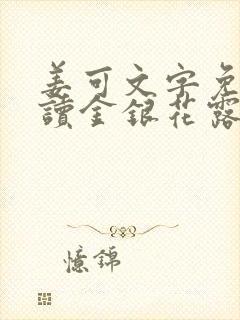 姜可文字免
讀全銀花露
憶錦